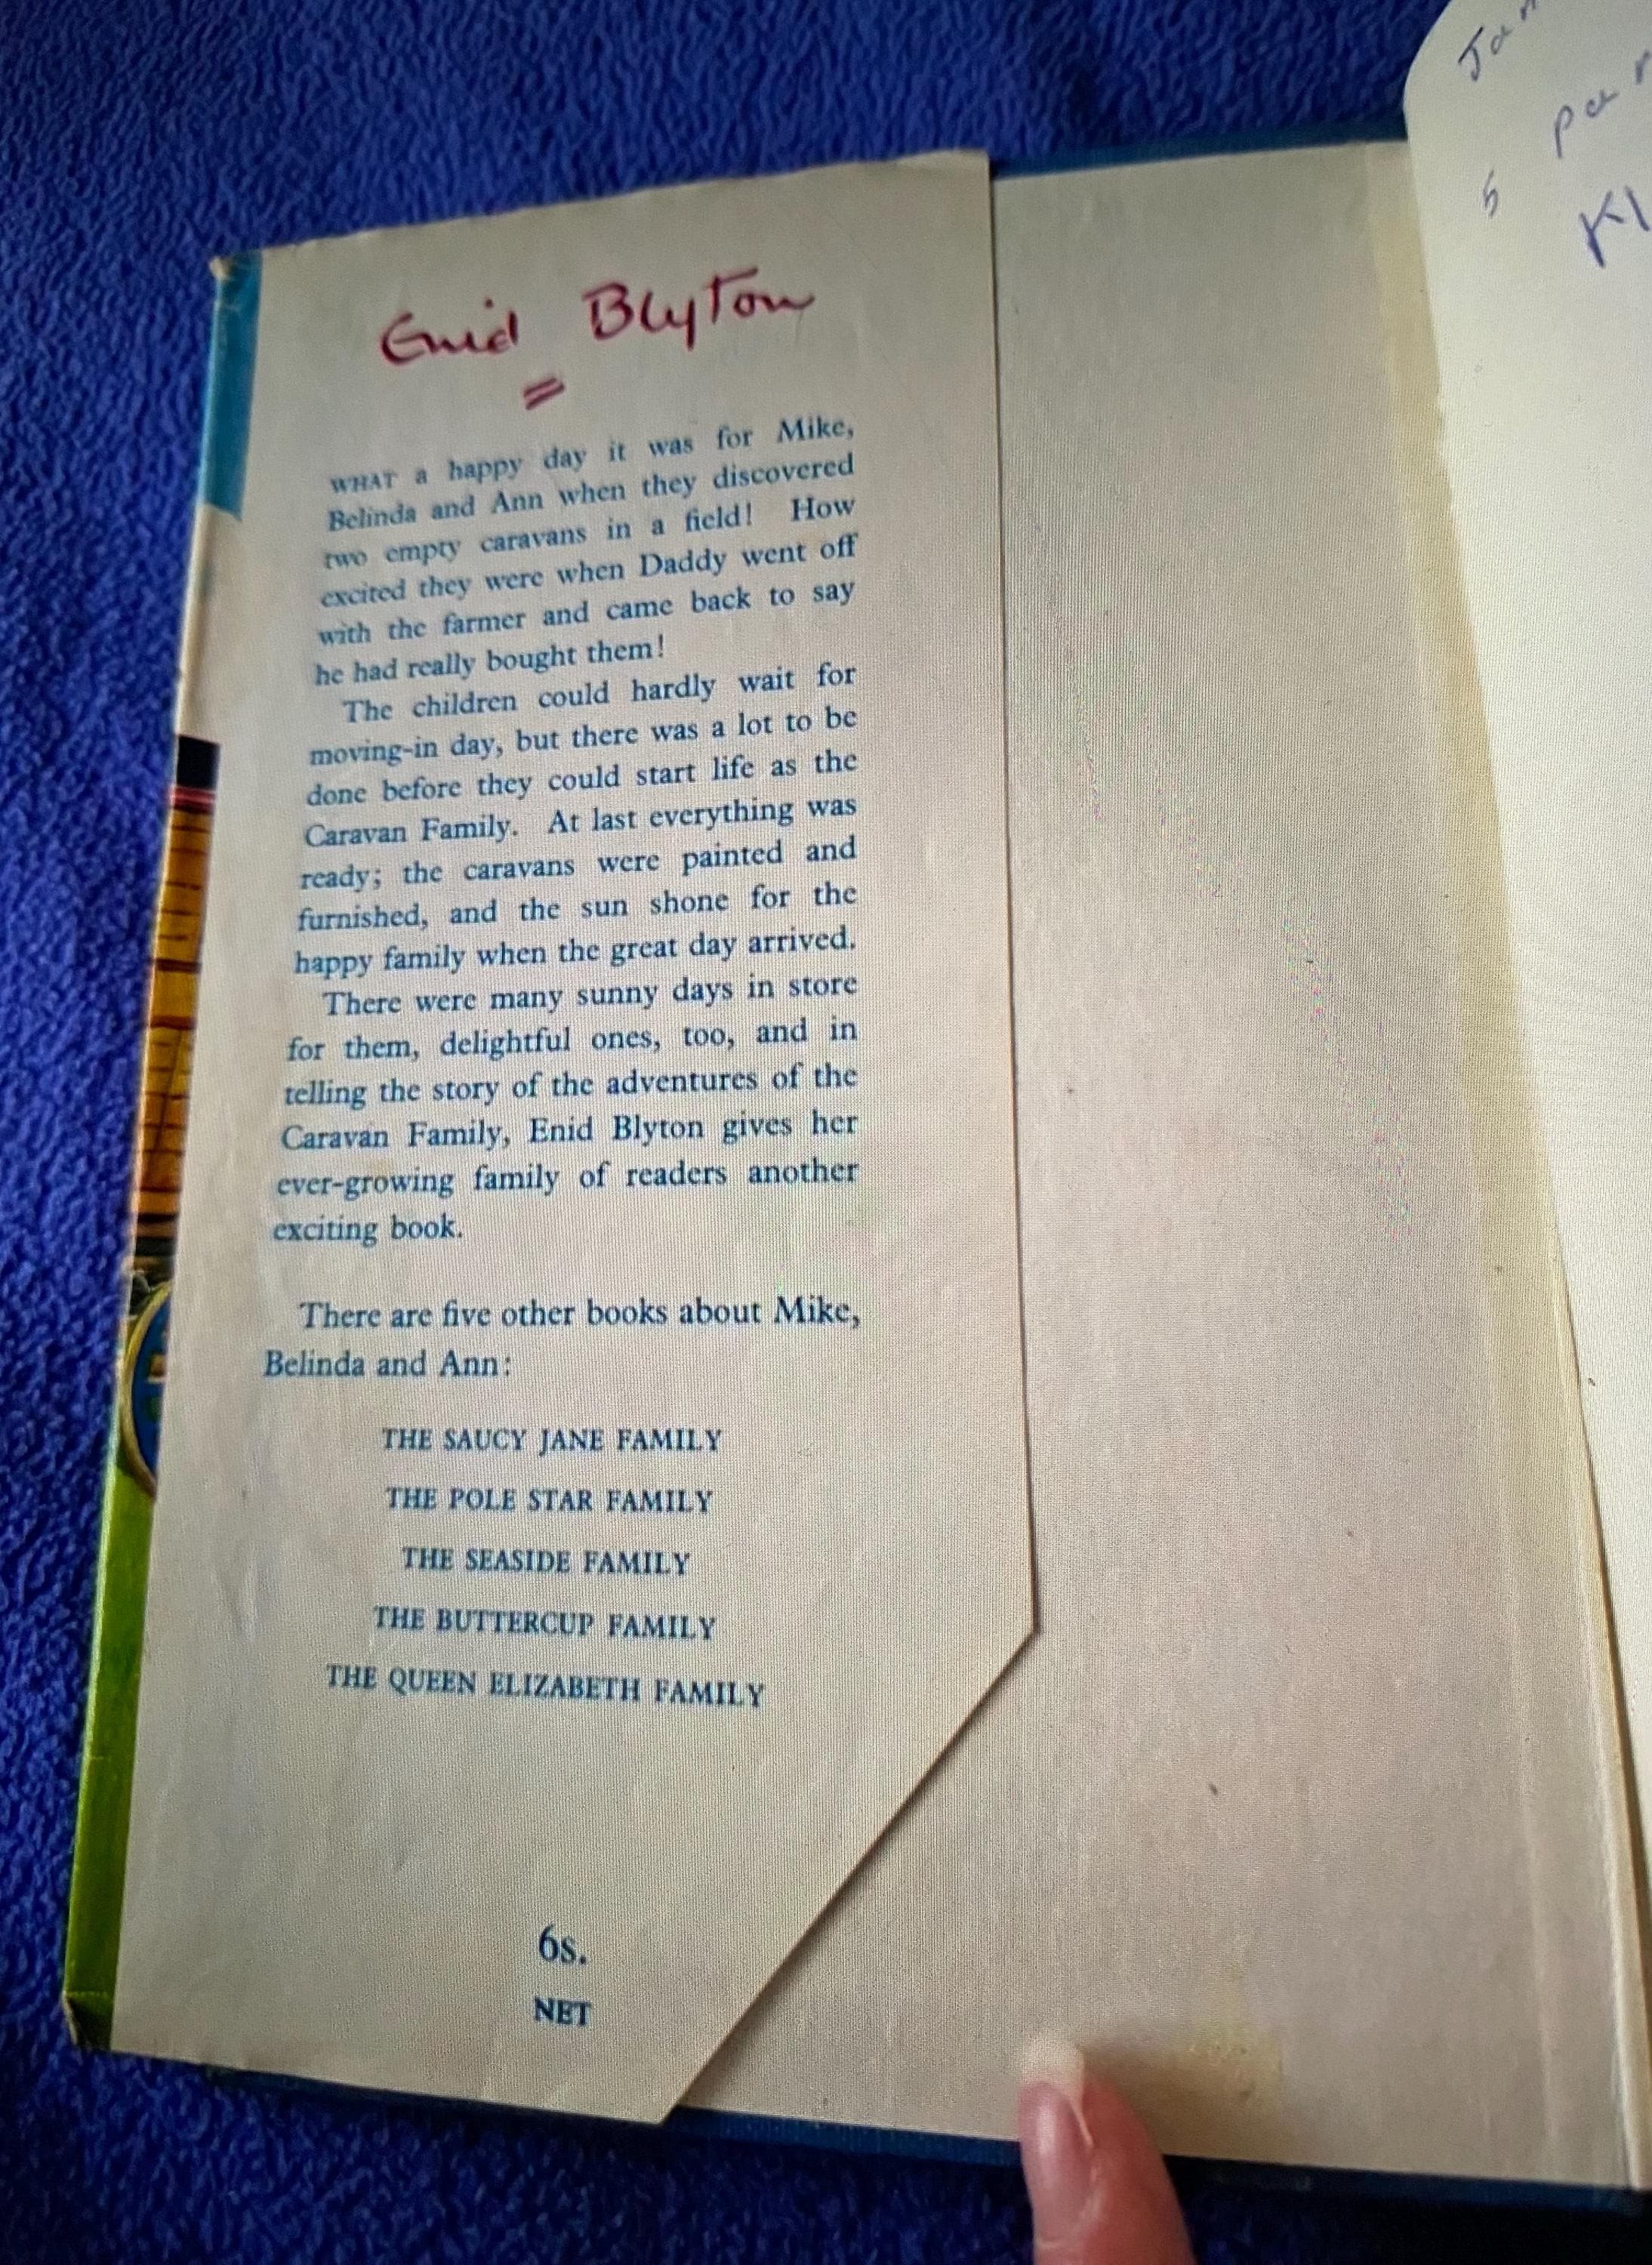 Enid Blyton
WHAT a happy day it was for Mike,
Belinda and Ann when they discovered
two empty caravans in a field! How
excited they were when Daddy went off
with the farmer and came back to say
he had really bought them!
The children could hardly wait for
moving-in day, but there was a lot to be
done before they could start life as the
Caravan Family. At last everything was
ready; the caravans were painted and
furnished, and the sun shone for the
happy family when the great day arrived.
There were many sunny days in store
for them, delightful ones, too, and in
telling the story of the adventures of the
Caravan Family, Enid Blyton gives her
ever-growing family of readers another
exciting book.
There are five other books about Mike,
Belinda and Ann:
THE SAUCY JANE FAMILY
THE POLE STAR FAMILY
THE SEASIDE FAMILY
THE BUTTERCUP FAMILY
THE QUEEN ELIZABETH FAMILY
6s.
NET